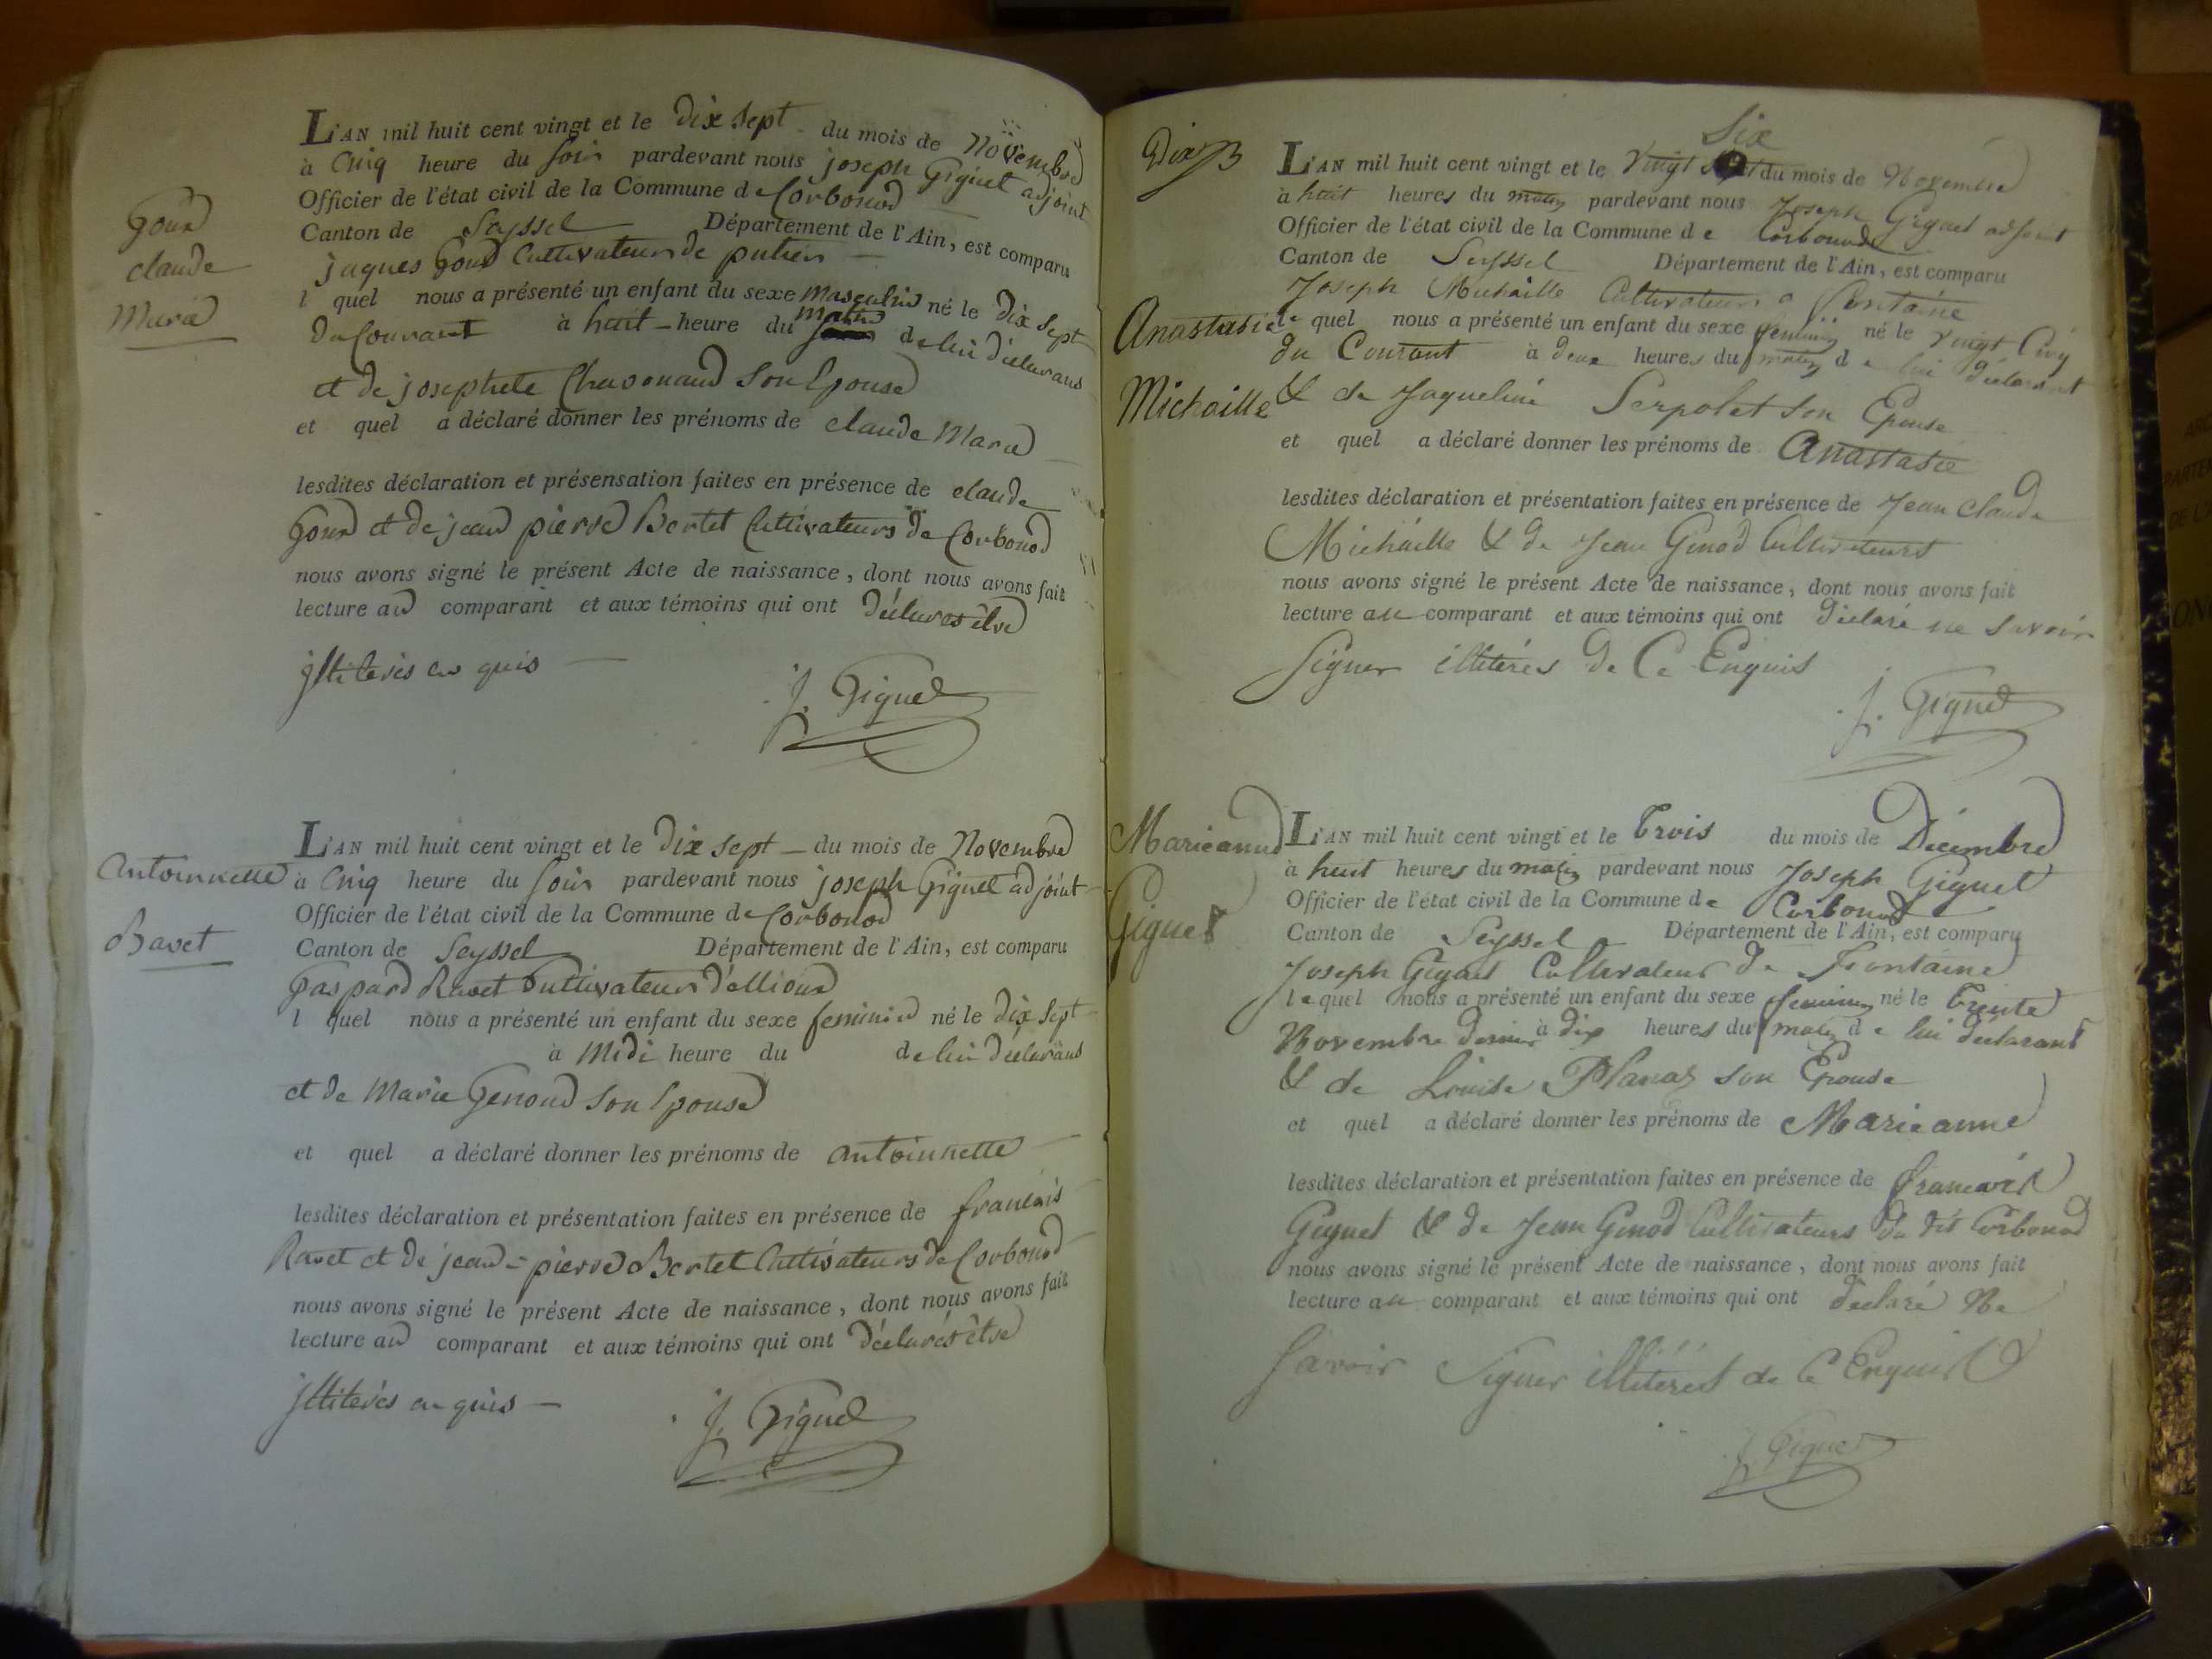 Goux
claude
Marie
L'AN mil huit cent vingt et le dix sept du mois de Novembre
à Cinq heure du soir pardevant nous joseph Giguet adjoint
Officier de l'état civil de la Commune de Corbonod
Canton de Seyssel Département de l'Ain, est comparu
jaques Goux Cultivateur de
l quel nous a présenté un enfant du sexe Masculin né le dix sept
du Courant à huit heure du Matin de lui déclarans
et de josephete Chavanaud son Epouse
et quel a déclaré donner les prénoms de claude Marie
lesdites déclaration et présensation faites en présence de claude
Goux et de jean pierre Bertet Cultivateurs de Corbonod
nous avons signé le présent Acte de naissance, dont nous avons fait
lecture au comparant et aux témoins qui ont déclarés être
jlliterés en quis
J. Giguet
Antoinnette
Ravet
L'AN mil huit cent vingt et le dix sept du mois de Novembre
à Cinq heure du soir pardevant nous joseph Giguet adjoint
Officier de l'état civil de la Commune de Corbonod
Canton de Seyssel Département de l'Ain, est comparu
Gaspard Ravet Cultivateur
l quel nous a présenté un enfant du sexe feminin né le dix sept
à Midi heure du de lui déclarans
et de Marie Genoud son Epouse
et quel a déclaré donner les prénoms de antoinnette
lesdites déclaration et présentation faites en présence de francais
Ravet et de jean-pierre Bertet Cultivateurs de Corbonod
nous avons signé le présent Acte de naissance, dont nous avons fait
lecture au comparant et aux témoins qui ont déclarés être
jlliterés en quis
J. Giguet
Six
Anastasie
Michaille
L'AN mil huit cent vingt et le Vingt du mois de Novembre
à huit heures du matin pardevant nous Joseph Giguet adjoint
Officier de l'état civil de la Commune de Corbonod
Canton de Seyssel Département de l'Ain, est comparu
Joseph Michaille Cultivateur a Fontaine
le quel nous a présenté un enfant du sexe feminin né le vingt Cinq
du Courant à deux heures du matin de lui déclarant
& de Jaqueline Serpolet son Epouse
et quel a déclaré donner les prénoms de Anastasie
lesdites déclaration et présentation faites en présence de Jean Claude
Michaille & de Jean Genod Cultivateurs
nous avons signé le présent Acte de naissance, dont nous avons fait
lecture au comparant et aux témoins qui ont déclaré ne savoir
Signer illiterés de Ce Enquis
J. Giguet
Marieanne
Giguet
L'AN mil huit cent vingt et le Trois du mois de Décembre
à huit heures du matin pardevant nous Joseph Giguet
Officier de l'état civil de la Commune de Corbonod
Canton de Seyssel Département de l'Ain, est comparu
Joseph Giguet Cultivateur de Fontaine
le quel nous a présenté un enfant du sexe feminin né le Trente
Novembre dernier à dix heures du matin de lui déclarant
& de Louise Planaz son Epouse
et quel a déclaré donner les prénoms de Marieanne
lesdites déclaration et présentation faites en présence de francois
Giguet & de Jean Genod Cultivateurs du dit Corbonod
nous avons signé le présent Acte de naissance, dont nous avons fait
lecture au comparant et aux témoins qui ont déclaré Ne
Savoir Signer illiterés de Ce Enquis
J. Giguet